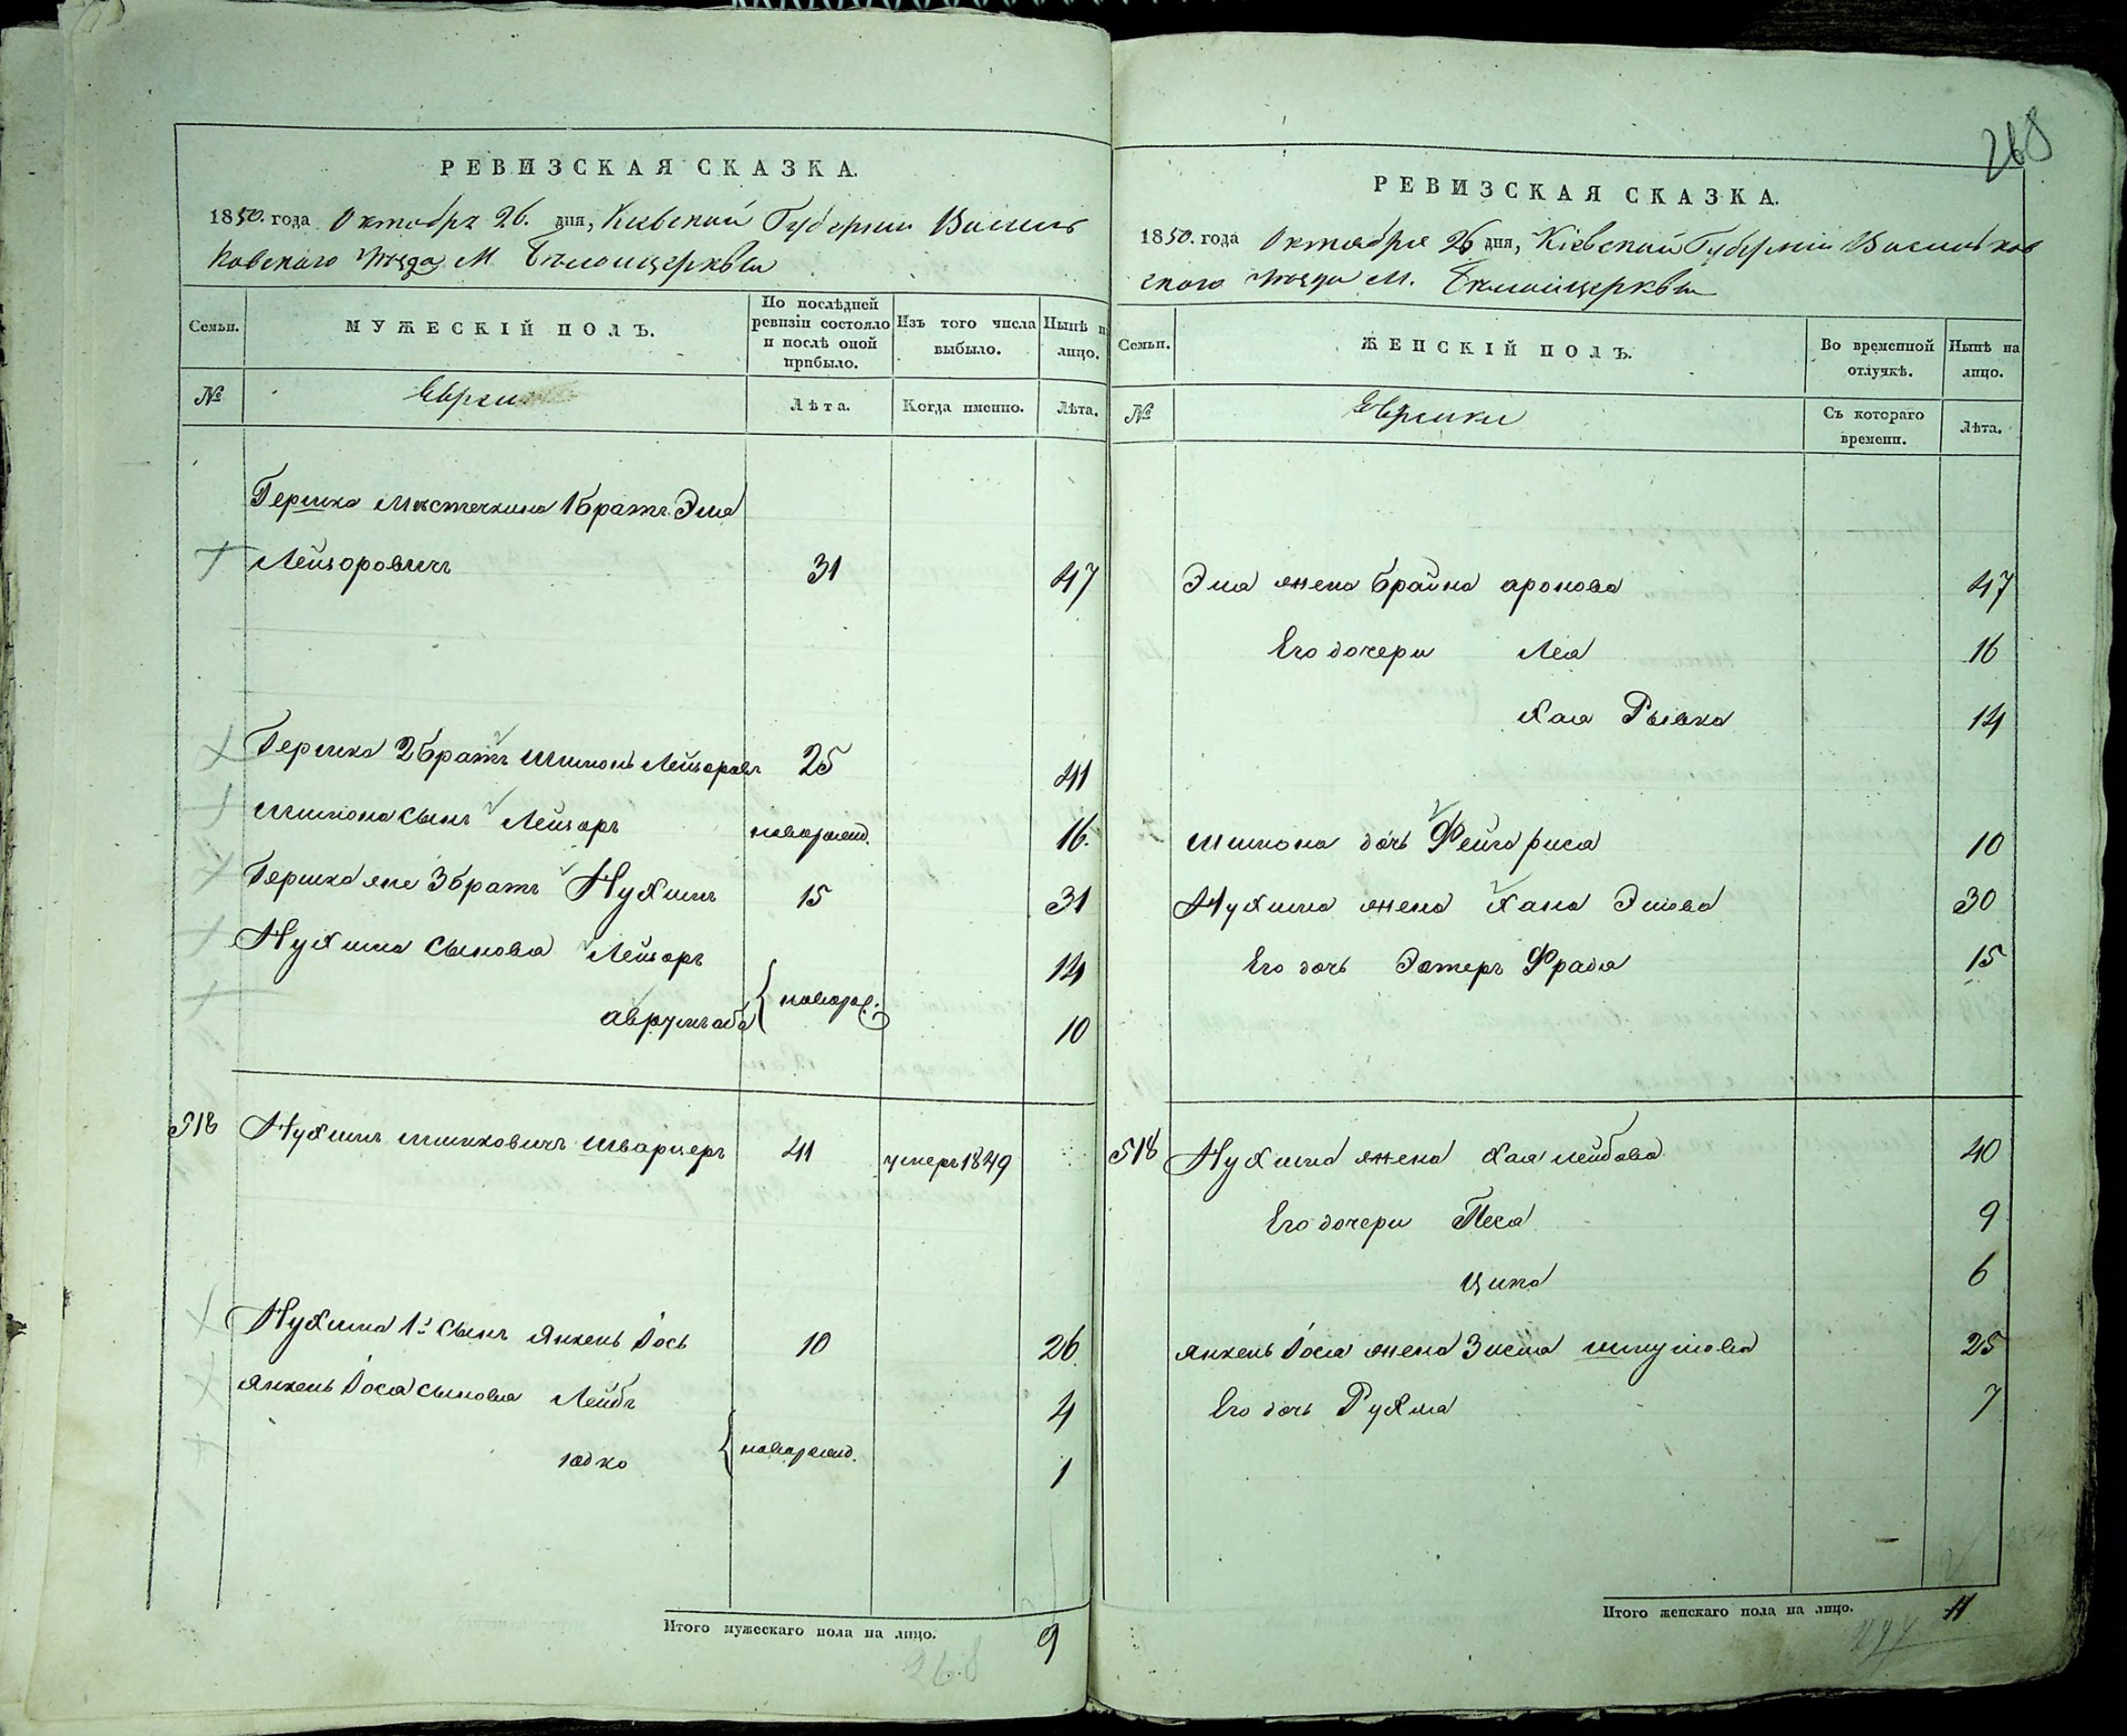 268
РЕВИЗСКАЯ СКАЗКА.
1850. года Октябръ 26. дня, Кіевской Губерніи Василь
ковскаго уѣзда М Бѣлоицерквы
Семьи.
МУЖЕСКІЙ ПОЛЪ.
По послѣдней ревизіи состояло и послѣ оной прибыло.
Изъ того числа выбыло.
Нынѣ н лицо.
№
Евреи
Лѣта.
Когда именно.
Лѣта.
Гершка Мѣстечкина 1 братъ Эля
Лейзоровичъ 31 47
Гершка 2 братъ Шимонъ Лейзоровъ 25 41
Шимона сынъ Лейзоръ новорожд. 16.
Гершка же 3 братъ Нухимъ 15 31
Нухима сыновья Лейзоръ 14
Аврумъ аба новорож. 10
518 Нухимъ Шмиковичъ Шварцеръ 41 умеръ 1849
Нухима 1й сынъ Янкель Іось 10 26
Янкель Іося сыновья Лейбъ 4
Юдко новорожд. 1
Итого мужескаго пола на лицо. 9
268
РЕВИЗСКАЯ СКАЗКА.
1850. года Октября 26 дня, Кіевской Губерніи Васильков
скаго уѣзда М. Бѣлоицерквы
Семьи.
ЖЕНСКІЙ ПОЛЪ.
Во временной отлучкѣ.
Нынѣ на лицо.
№
Еврейки
Съ котораго времени.
Лѣта.
Эля жена Брайна Аронова 47
Его дочери Лея 16
Хая Рывка 14
Шимона дочь Фейга риса 10
Нухима жена Хана Эліова 30
Его дочь Эстеръ Фрадя 15
518 Нухима жена Хая Лейбова 40
Его дочери Песя 9
Ципа 6
Янкель Іося жена Зисля Шмулова 25
Его дочь Рухля 7
Итого женскаго пола на лицо. 11